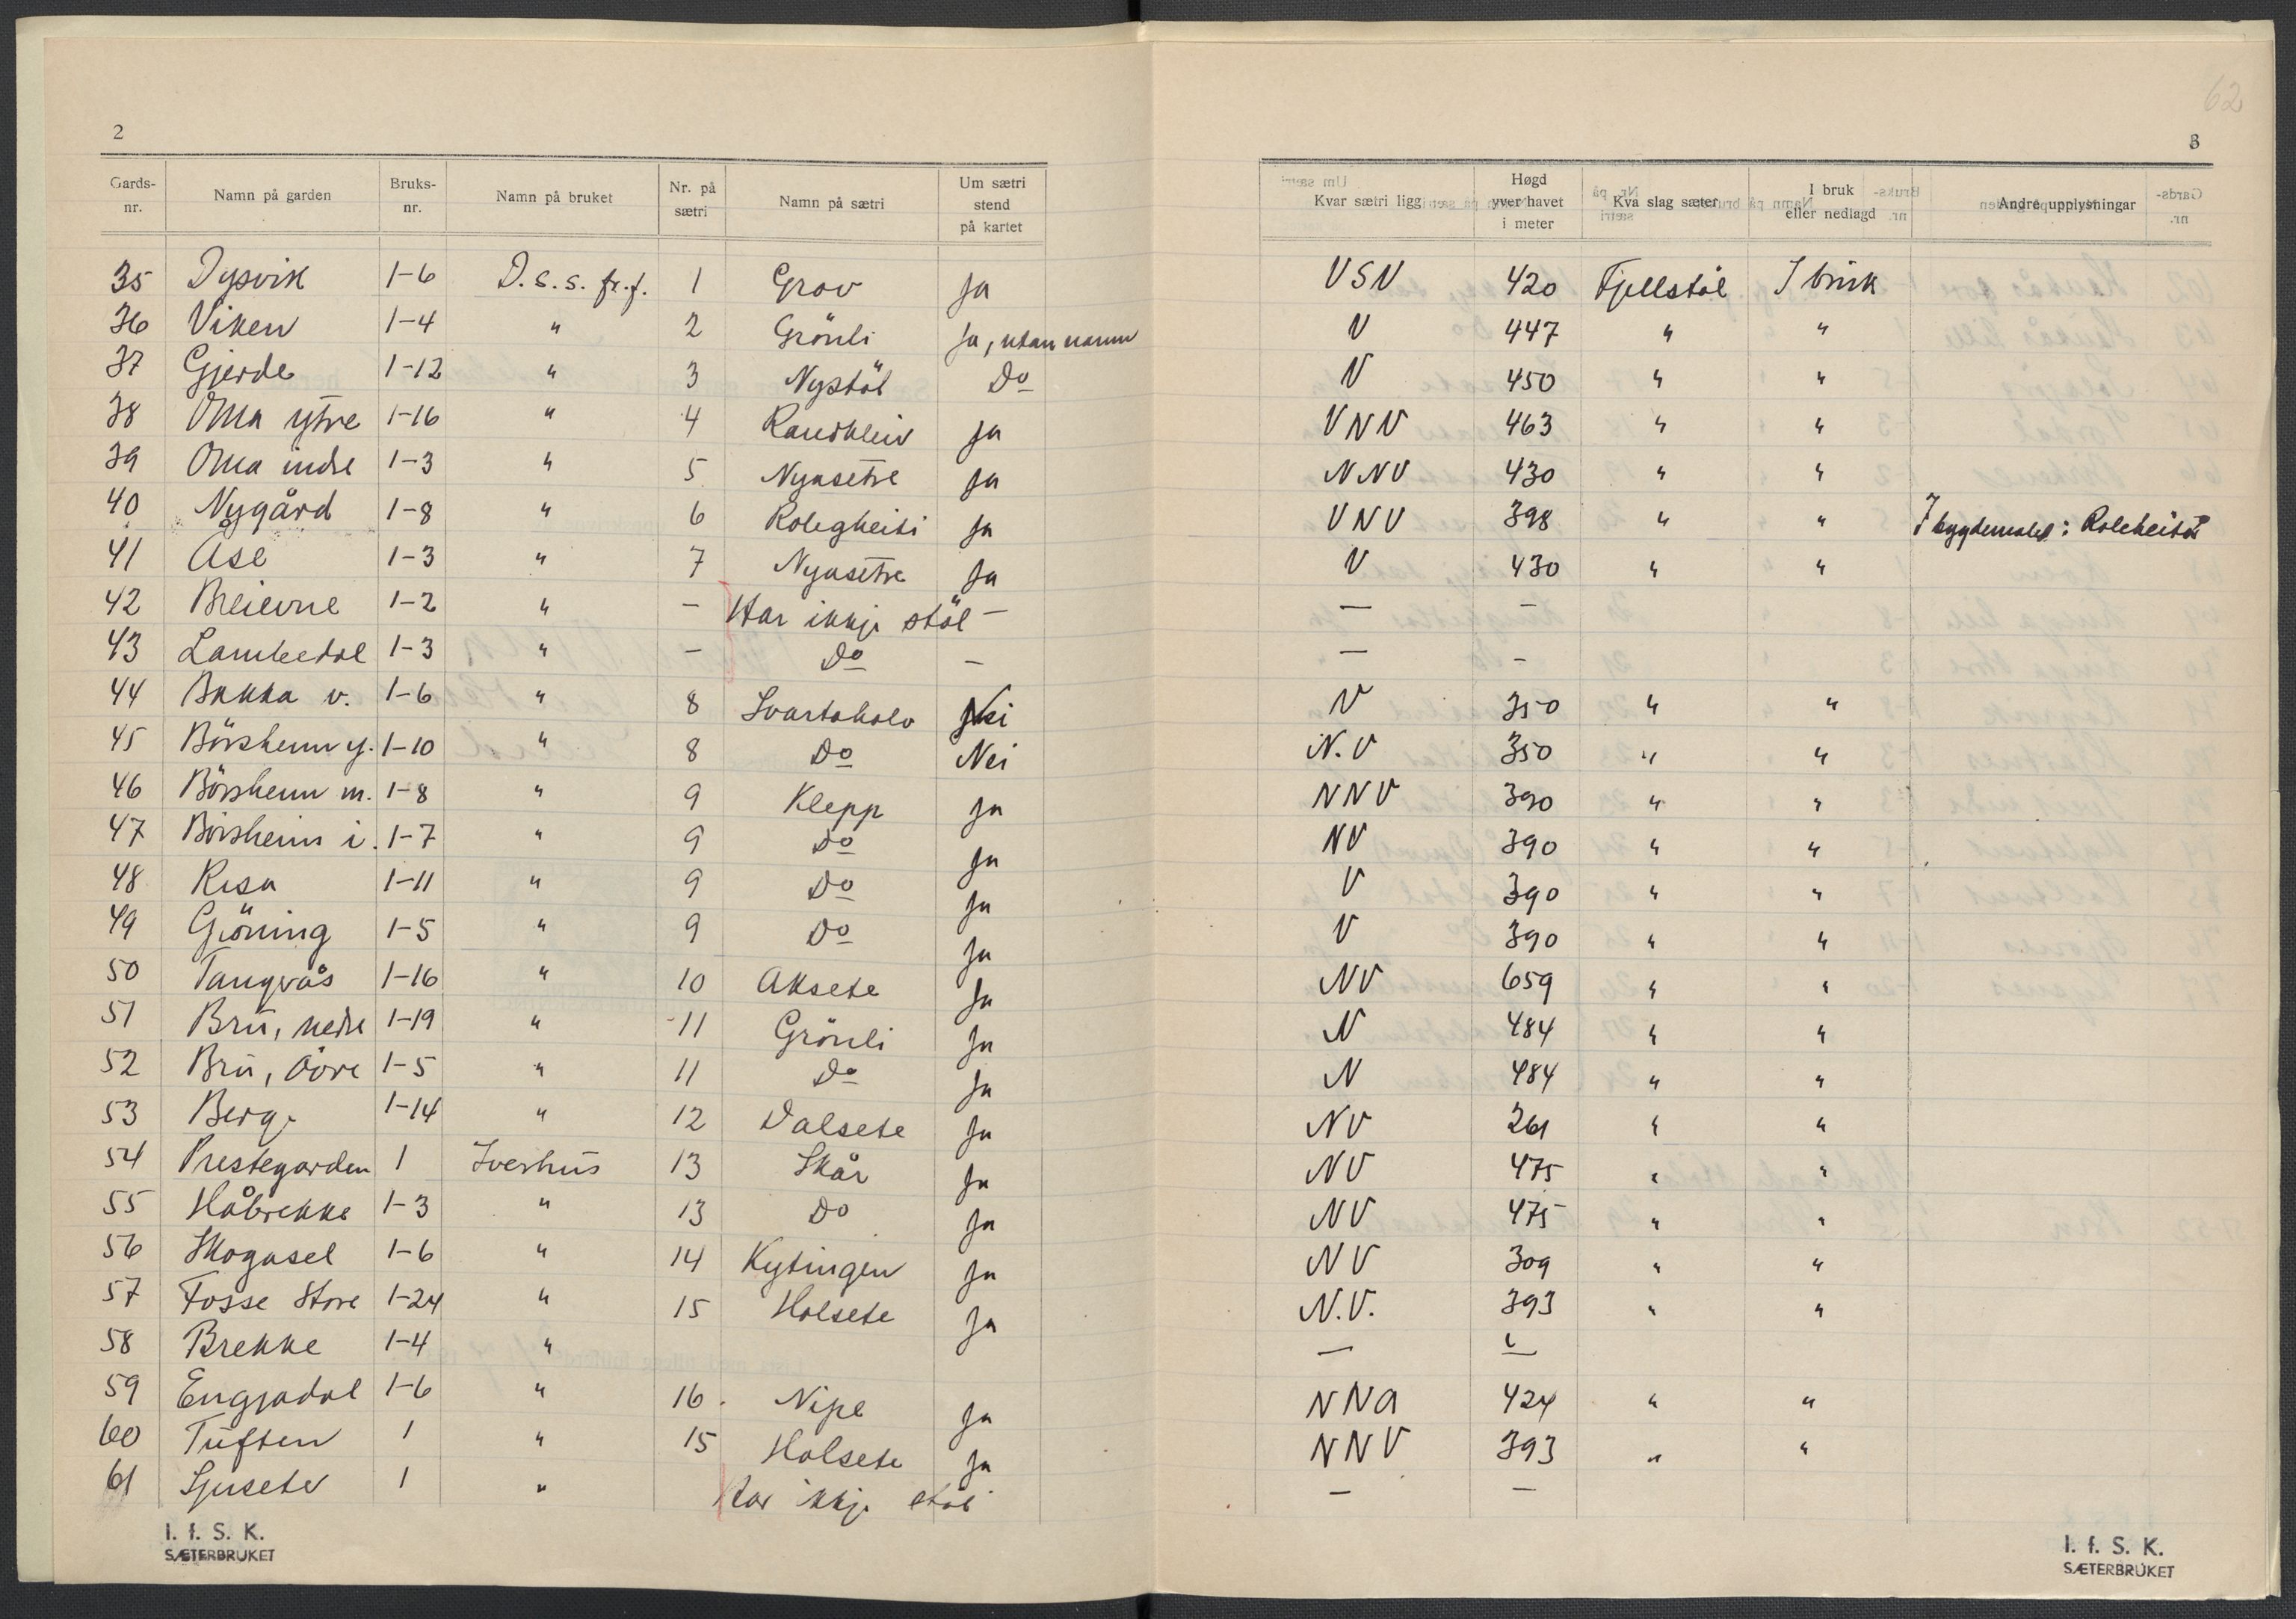 62
2
3
Gards-nr. | Namn på garden | Bruks-nr. | Namn på bruket | Nr. på sætri | Namn på sætri | Um sætri stend på kartet | Kvar sætri ligg | Høgd yver havet i meter | Kva slag sæter | I bruk eller nedlagd | Andre upplysningar
35 | Dysvik | 1-6 | D.s.s. fr.f. | 1 | Grov | Ja | VSV | 420 | Fjellstöl | I bruk
36 | Viken | 1-4 | " | 2 | Grönli | Ja, utan namn | V | 447 | " | "
37 | Gjerde | 1-12 | " | 3 | Nystöl | Do | V | 450 | " | "
38 | Oma ytre | 1-16 | " | 4 | Raudkleiv | Ja | VNV | 463 | " | "
39 | Oma indre | 1-3 | " | 5 | Nyasetre | Ja | NNV | 430 | " | "
40 | Nygård | 1-8 | " | 6 | Rolegheiti | Ja | VNV | 398 | " | " | I bygdemålet: Roleheitæ
41 | Åse | 1-3 | " | 7 | Nyasetre | Ja | V | 430 | " | "
42 | Breievne | 1-2 | " | - | Har ikkje stöl | - | - | -
43 | Lambedal | 1-3 | " | - | Do | - | - | -
44 | Bakka v. | 1-6 | " | 8 | Svartoholo | Nei | V | 350 | " | "
45 | Börsheim y. | 1-10 | " | 8 | Do | Nei | N.V | 350 | " | "
46 | Börsheim m. | 1-8 | " | 9 | Klepp | Ja | NNV | 390 | " | "
47 | Börsheim i. | 1-7 | " | 9 | Do | Ja | NV | 390 | " | "
48 | Risa | 1-11 | " | 9 | Do | Ja | V | 390 | " | "
49 | Gjöning | 1-5 | " | 9 | Do | Ja | V | 390 | " | "
50 | Tangvås | 1-16 | " | 10 | Aksete | Ja | NV | 659 | " | "
51 | Bru, nedre | 1-19 | " | 11 | Grönli | Ja | N | 484 | " | "
52 | Bru, övre | 1-5 | " | 11 | Do | Ja | N | 484 | " | "
53 | Berge | 1-14 | " | 12 | Dalsete | Ja | NV | 261 | " | "
54 | Prestegarden | 1 | Iverhus | 13 | Skår | Ja | NV | 475 | " | "
55 | Håbrekke | 1-3 | " | 13 | Do | Ja | NV | 475 | " | "
56 | Skogasel | 1-6 | " | 14 | Kytingen | Ja | NV | 309 | " | "
57 | Fosse Store | 1-24 | " | 15 | Holsete | Ja | N.V. | 393 | " | "
58 | Brekke | 1-4 | " | - | -
59 | Engjadal | 1-6 | " | 16 | Nipe | Ja | NNA | 424 | " | "
60 | Tuften | 1 | " | 15 | Holsete | Ja | NNV | 393 | " | "
61 | Sjusete | 1 | " | Har ikkje stöl | - | -
I. f. S. K.
SÆTERBRUKET
I. f. S. K.
SÆTERBRUKET